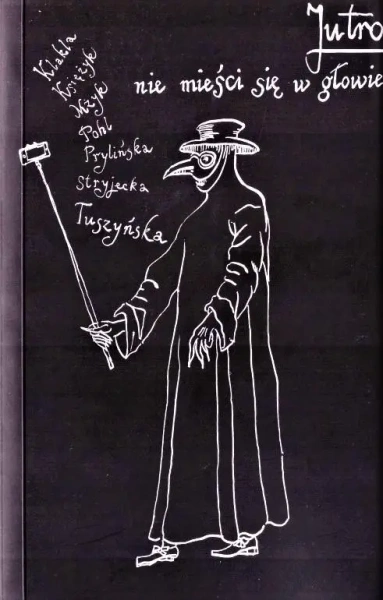 Jutro
nie mieści się w głowie
Kłakla
Księżyk
Mżyk
Pohl
Prylińska
Stryjecka
Tuszyńska